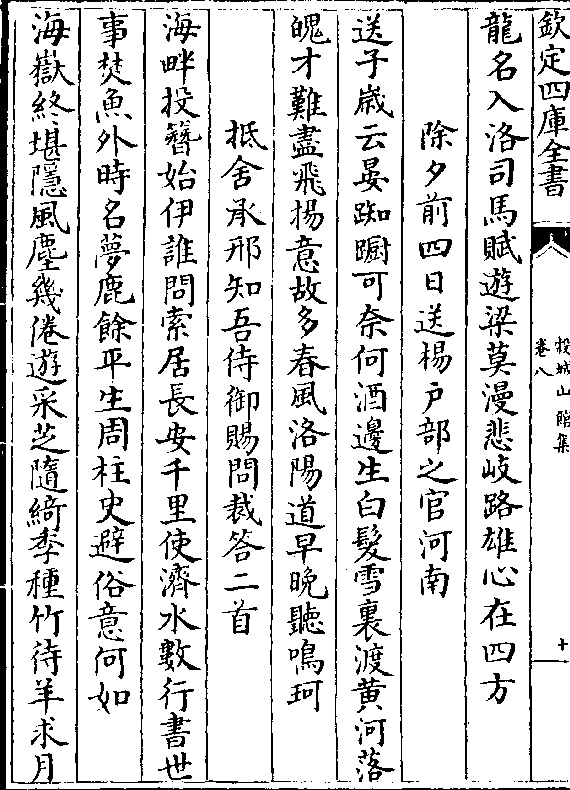 欽定四庫全書
卷八
十
龍名入洛司馬賦遊梁莫漫悲岐路雄心在四方
除夕前四日送楊户部之官河南
送子歲云晏踟躕可奈何酒邊生白髮雪裏渡黄河落
魄才難盡飛揚意故多春風洛陽道早晚聽鳴珂
抵舍承邢知吾侍御賜問裁答二首
海畔投簪始伊誰問索居長安千里使濟水數行書世
事焚魚外時名夢鹿餘平生周柱史避俗意何如
海嶽終堪隱風塵幾倦遊采芝隨綺季種竹待羊求月